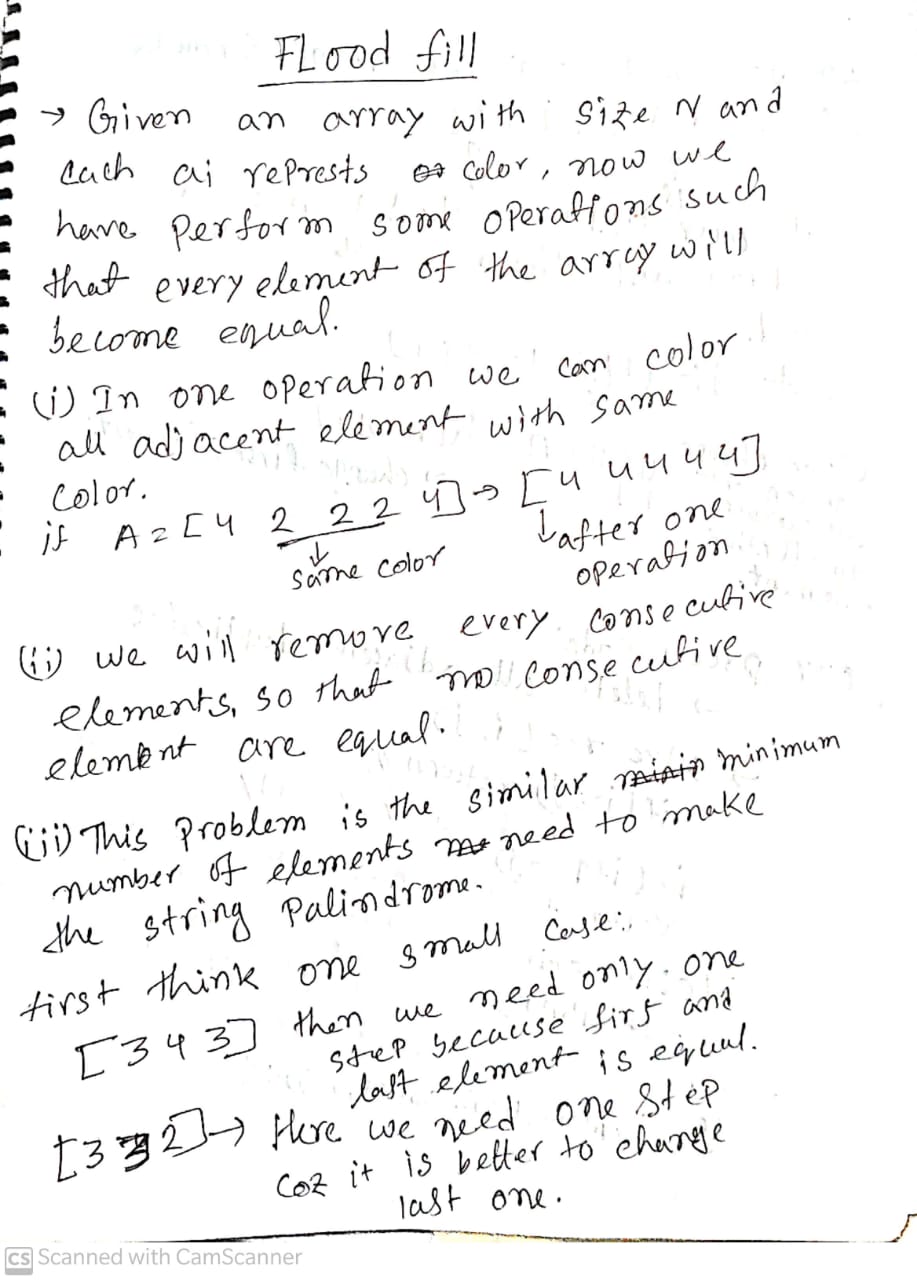 FLood fill
→ Given an array with size N and
each ai represts color, now we
have perform some operations such
that every element of the array will
become equal.
(i) In one operation we can color
all adjacent element with same
color.
if A = [4 2 2 2 4] → [4 4 4 4 4]
↓ same color
↳ after one operation
(ii) we will remove every consecutive
elements, so that no consecutive
element are equal.
(iii) This problem is the similar minimum
number of elements need to make
the string palindrome.
first think one small case:
[3 4 3] then we need only one
step because first and
last element is equal.
[3 3 2] → Here we need one step
coz it is better to change
last one.
CS Scanned with CamScanner